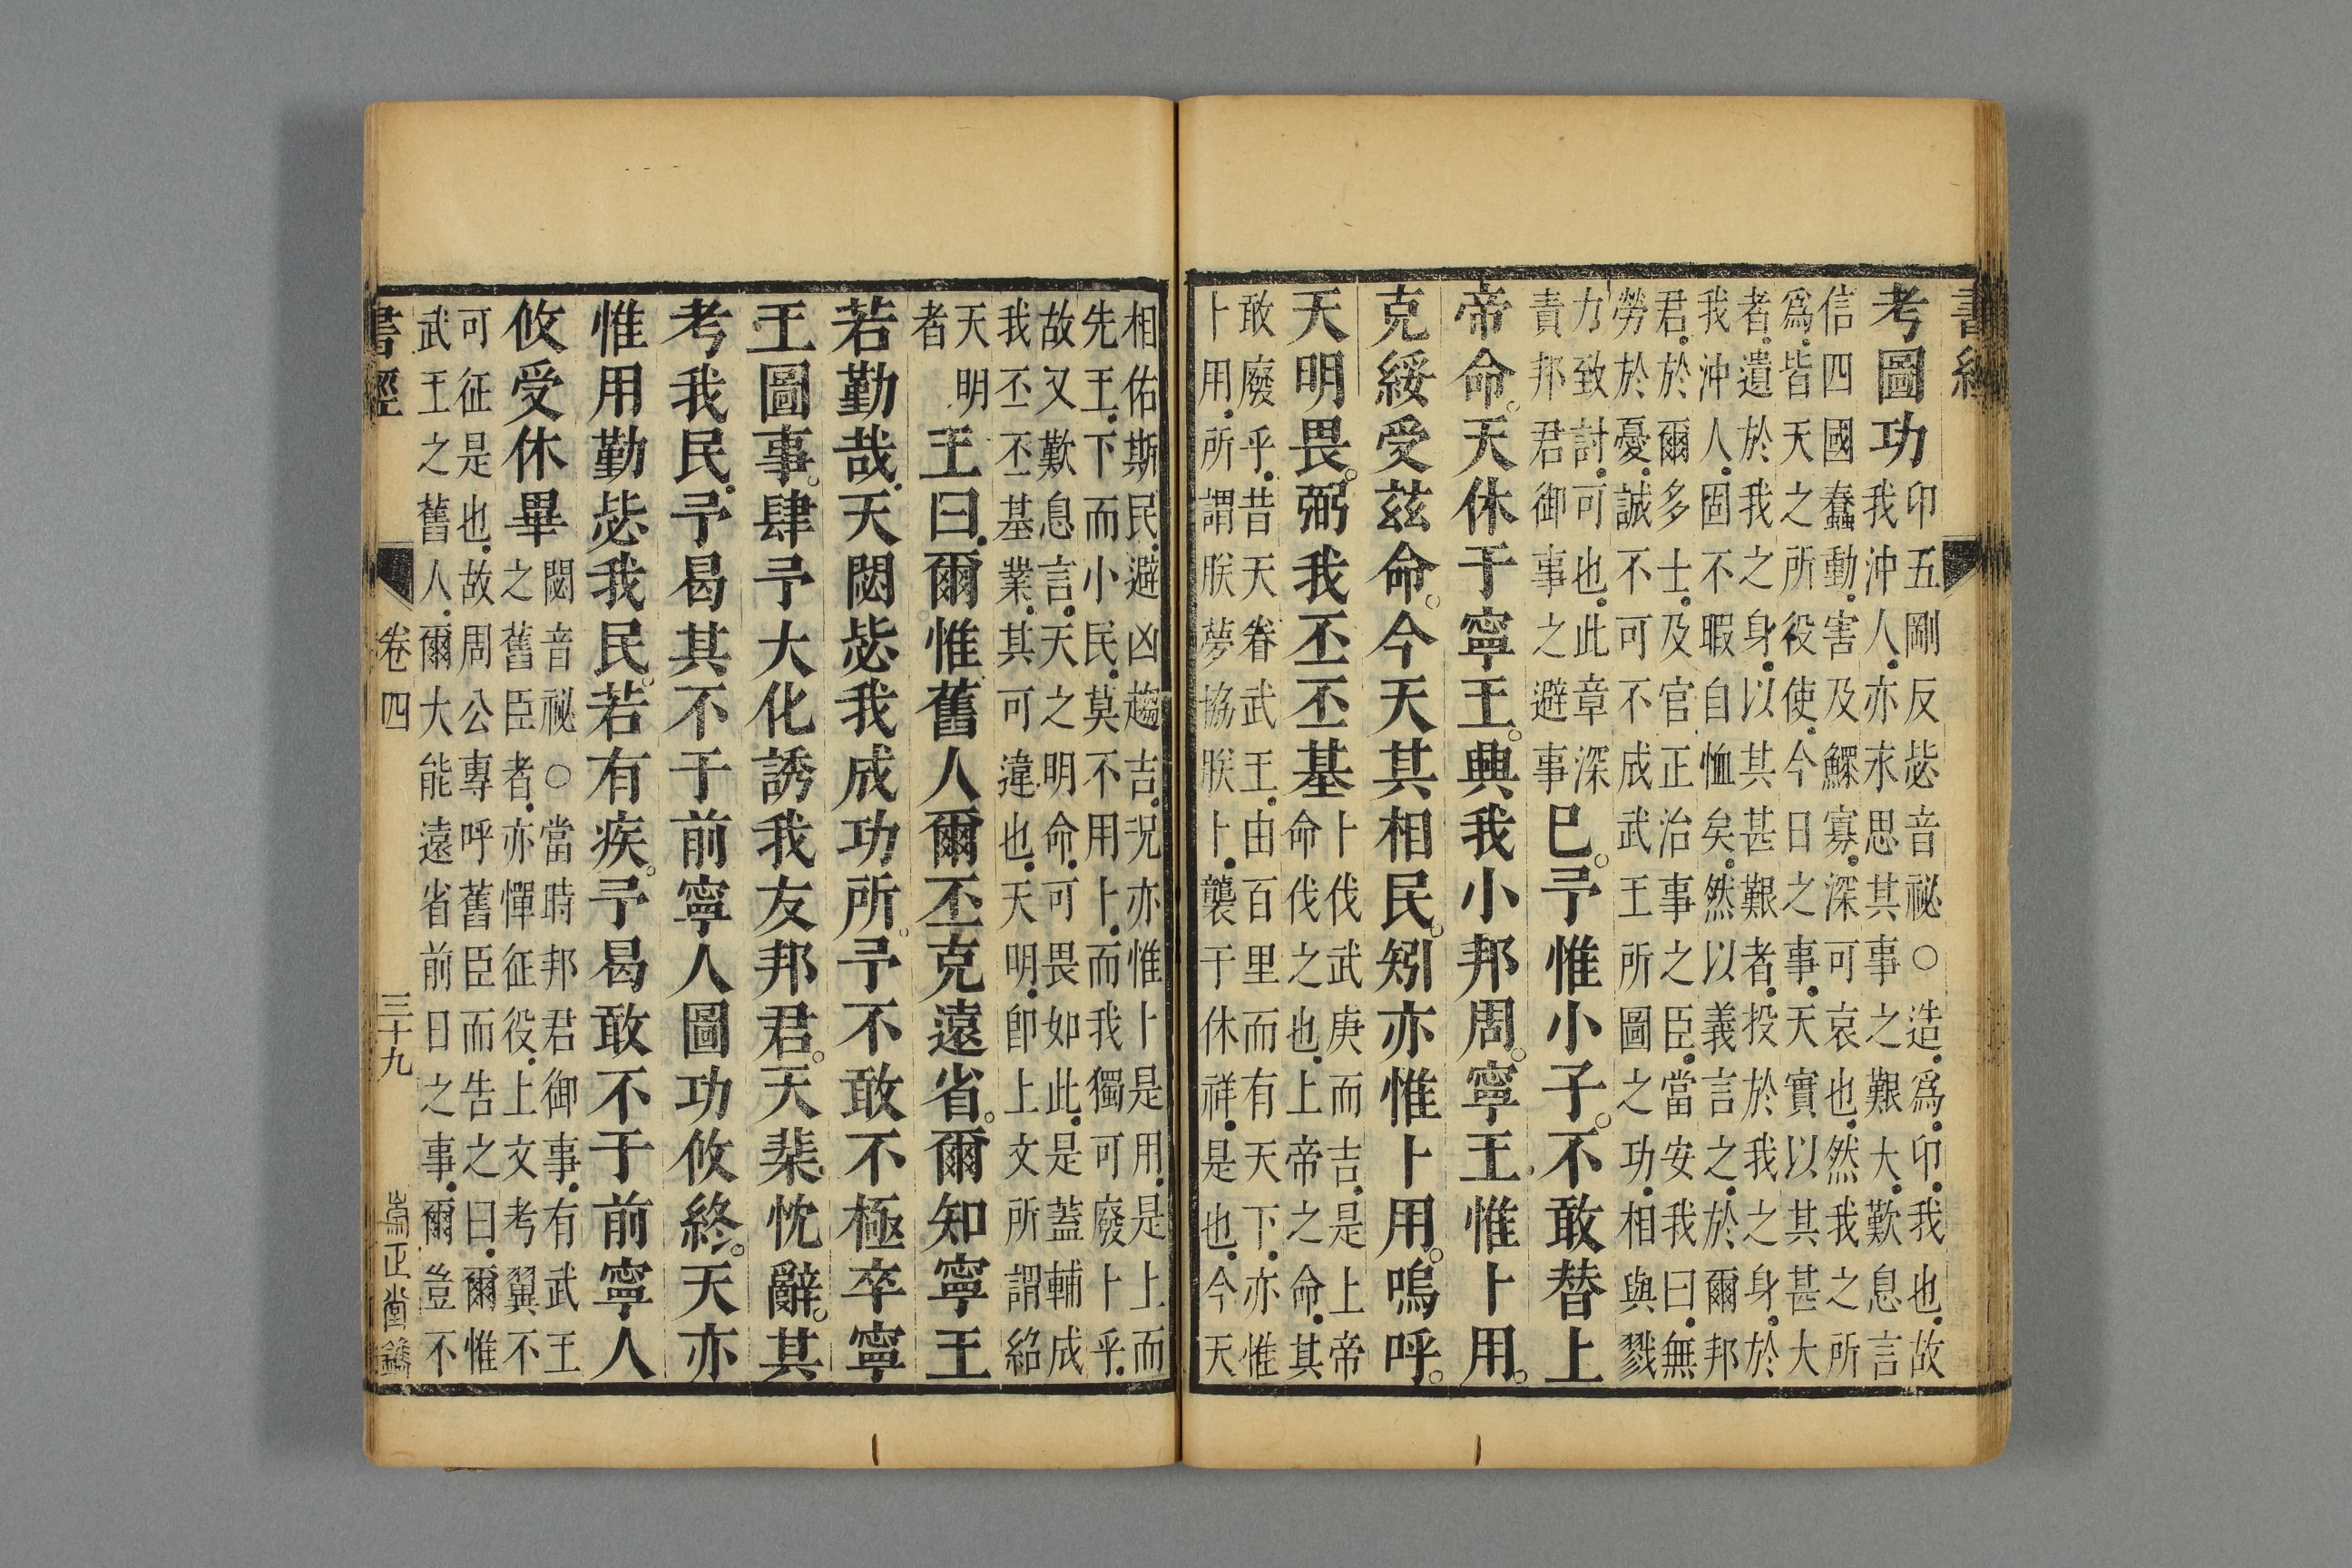 書經
考圖功
卭五剛反毖音祕○造爲卭我也故
我沖人亦永思其事之艱大歎息言
信四國蠢動害及鰥寡深可哀也然我之所
爲皆天之所役使今日之事天實以其甚大
者遺於我之身以其甚艱者投於我之身於
我沖人固不暇自恤矣然以義言之於爾邦
君於爾多士及官正治事之臣當安我曰無
勞於憂誠不可不成武王所圖之功相與戮
力致討可也此章深
責邦君御事之避事
已予惟小子不敢替上
帝命天休于寧王興我小邦周寧王惟卜用
克綏受茲命今天其相民矧亦惟卜用嗚呼
天明畏弼我丕丕基
卜伐武庚而吉是上帝
命伐之也上帝之命其
敢廢乎昔天眷武王由百里而有天下亦惟
卜用所謂朕夢協朕卜襲于休祥是也今天
相佑斯民避凶趨吉況亦惟卜是用是上而
先王下而小民莫不用卜而我獨可廢卜乎
故又歎息言天之明命可畏如此是蓋輔成
我丕丕基業其可違也天明卽上文所謂紹
天明
者
王曰爾惟舊人爾丕克遠省爾知寧王
若勤哉天閟毖我成功所予不敢不極卒寧
王圖事肆予大化誘我友邦君天棐忱辭其
考我民予曷其不于前寧人圖功攸終天亦
惟用勤毖我民若有疾予曷敢不于前寧人
攸受休畢
閟音祕○當時邦君御事有武王
之舊臣者亦憚征役上文考翼不
可征是也故周公專呼舊臣而告之曰爾惟
武王之舊人爾大能遠省前日之事爾豈不
書經 卷四 三十九 崇正堂鐫